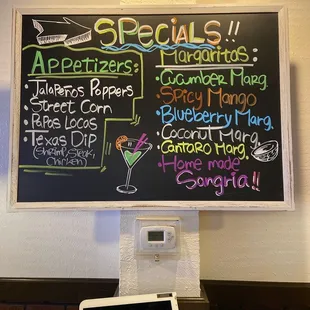 Specials!!
Appetizers:
Jalapeños Poppers
Street Corn
Papas Locas
Texas Dip
(Shrimp, Steak,
Chicken)
Margaritas:
Cucumber Marg.
Spicy Mango
Blueberry Marg.
Coconut Marg.
Cantaro Marg.
Home made
Sangria!!